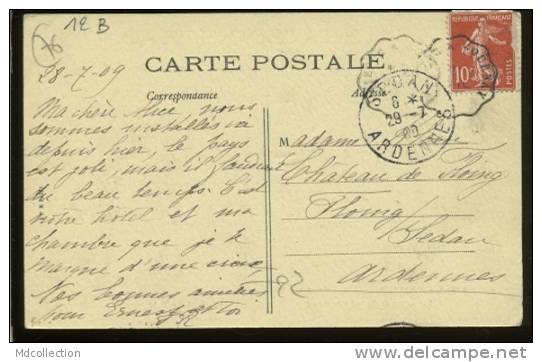 76
12 B
28-7-09
CARTE POSTALE
Correspondance
Adresse
RÉPUBLIQUE FRANÇAISE
10c
POSTES
SEDAN
6 *
29 - 7
09
ARDENNES
Ma chère Alice nous
sommes installés ici
depuis hier, le pays
est joli, mais il faudrait
du beau temps. C'est
notre hôtel et ma
chambre que je te
marque d'une croix.
Nos bonnes amitiés
pour Ernest et toi
Madame
Château de
Floing
Sedan
Ardennes
92
MDcollection
http://www.delcampe.net